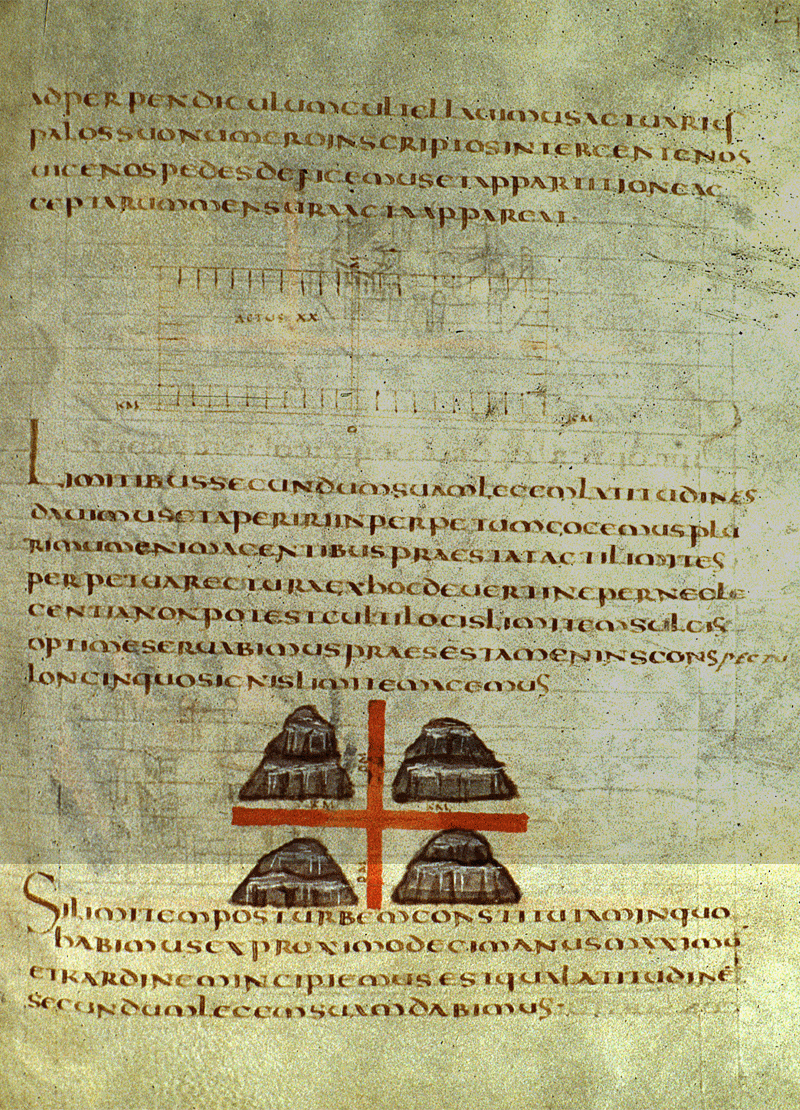 adperpendiculumcultellauimusactuariis
palossuonumeroinscriptosintercentenos
uicenospedesdeficemusetappartitioneac
ceptarummensuraactaappareat
actus xx
KM
KM
Limitibussecundumsuamlegemlatitudines
dauimusetapeririinperpetumcogemusplu
rimumenimagentibuspraestatactilimites
perpetuarecturaexhocdeuertinepernegle
gentianonpotestcultilocislimitemsulcis
optimeseruabimuspraesestameninsconspectu
loncinquosignislimitemagemus
KM
KM
DM
Silimitemposturbemconstitutaminquo
habimusexproximodecimanusmaximu
etkardinemincipiemusestqualatitudine
secundumlegemsuamdabimus